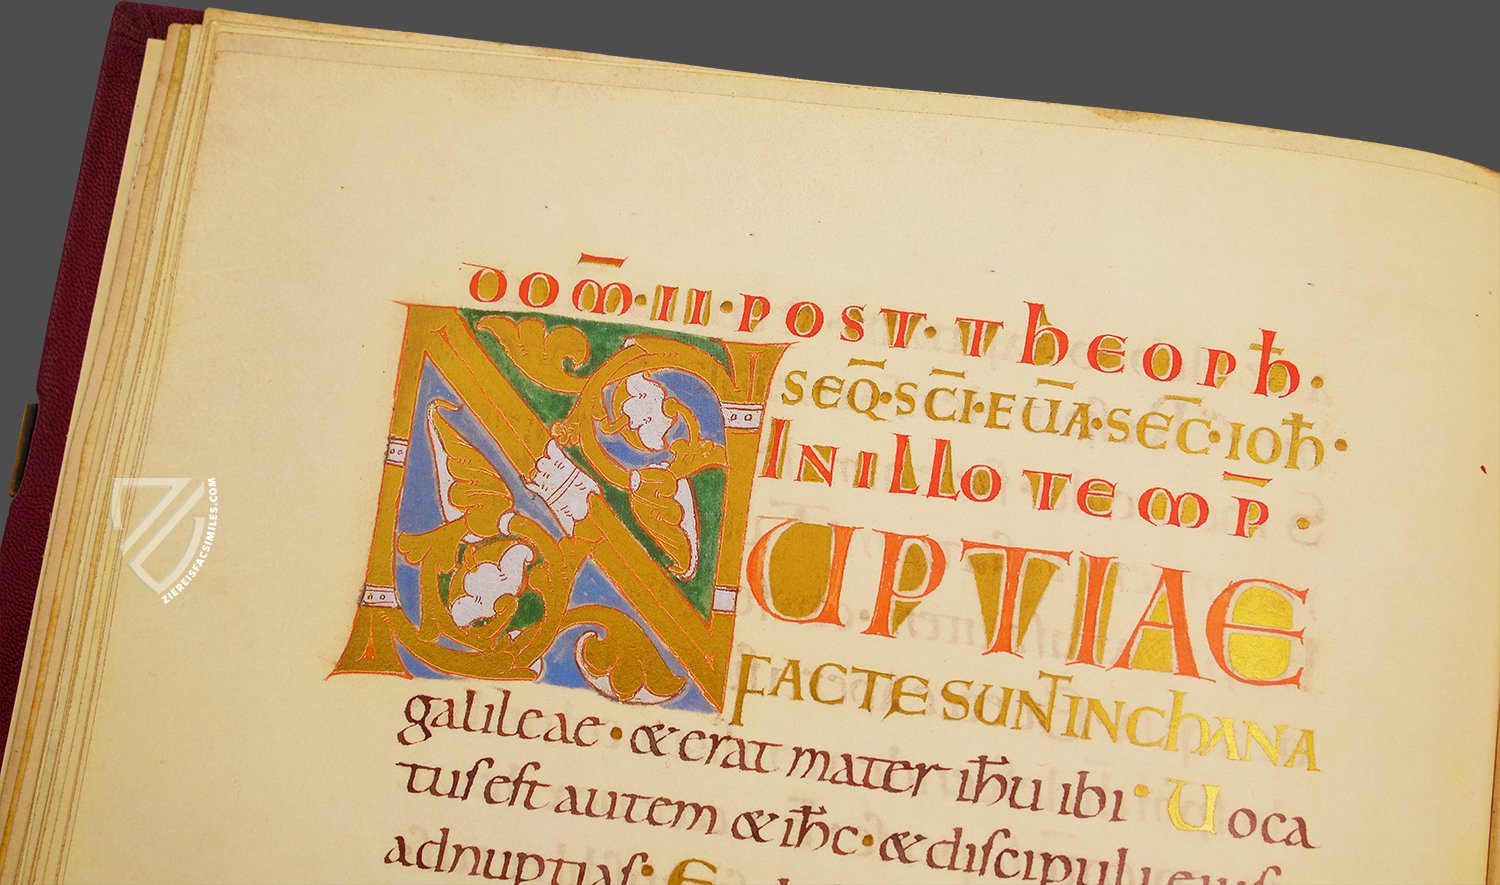 DOM̄·II·POST·THEOPħ·
SEQ̄·SC̄I·EŪA·SEC̄·IOħ·
IN ILLO TEMP̄·
NUPTIAE
FACTE SUNT IN CHANA
galileae· & erat mater ihu ibi· Uoca
tuſ eſt autem & ihc· & diſcipuli eiuſ
ad nuptiaſ· E
ZIEREISFACSIMILES.COM